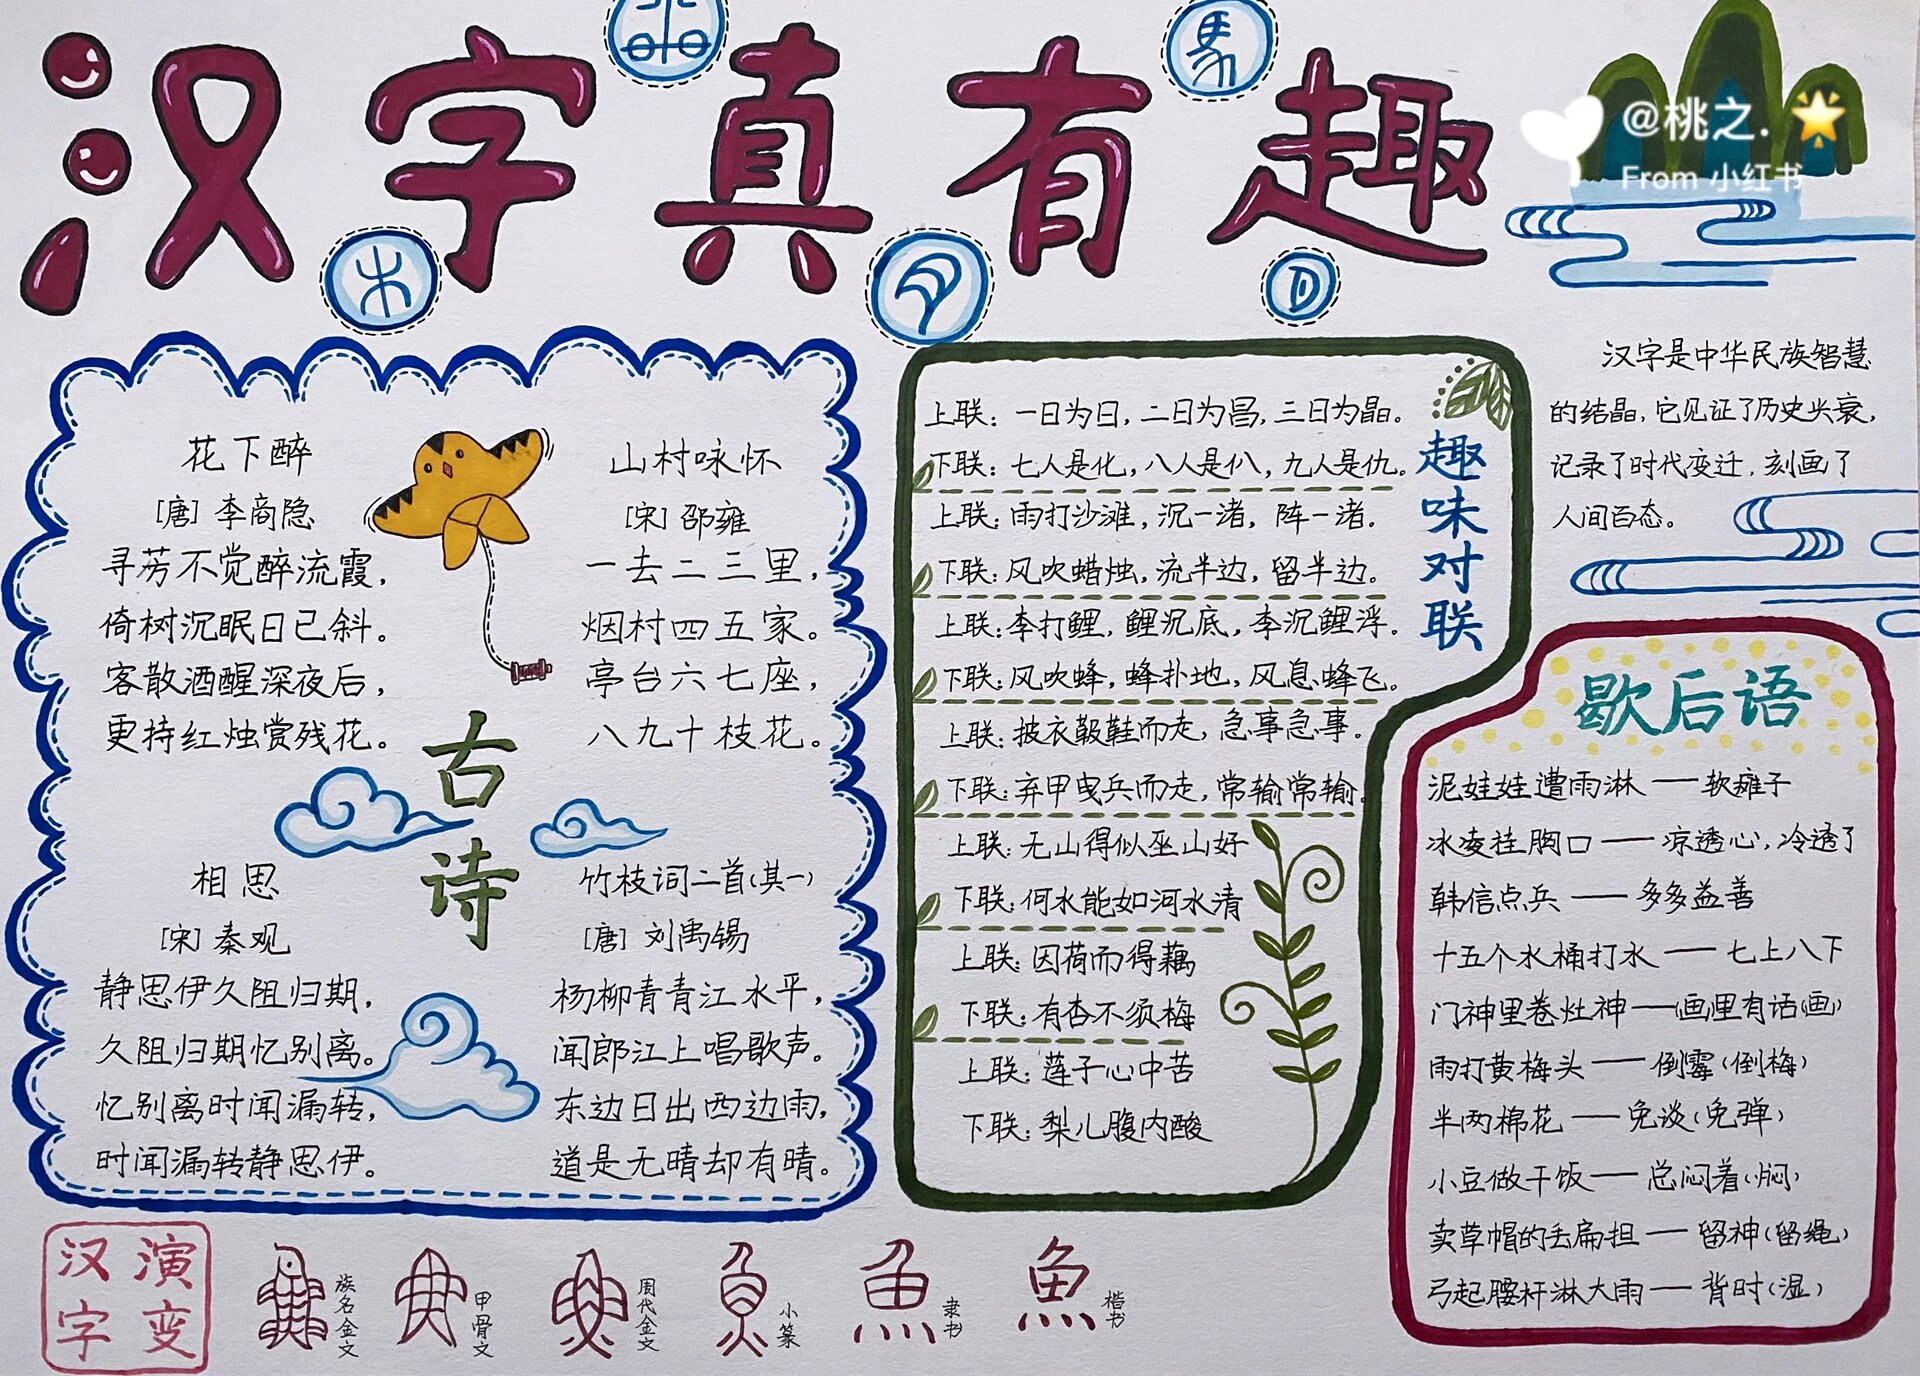 汉字真有趣
@桃之.
From 小红书
花下醉
[唐] 李商隐
寻芳不觉醉流霞,
倚树沉眠日已斜。
客散酒醒深夜后,
更持红烛赏残花。
山村咏怀
[宋] 邵雍
一去二三里,
烟村四五家。
亭台六七座,
八九十枝花。
古诗
相思
[宋] 秦观
静思伊久阻归期,
久阻归期忆别离。
忆别离时闻漏转,
时闻漏转静思伊。
竹枝词二首(其一)
[唐] 刘禹锡
杨柳青青江水平,
闻郎江上唱歌声。
东边日出西边雨,
道是无晴却有晴。
趣味对联
上联: 一日为日, 二日为昌, 三日为晶。
下联: 七人是化, 八人是仈, 九人是仇。
上联: 雨打沙滩, 沉一渚, 阵一渚.
下联: 风吹蜡烛, 流半边, 留半边.
上联: 李打鲤, 鲤沉底, 李沉鲤浮。
下联: 风吹蜂, 蜂扑地, 风息蜂飞。
上联: 披衣靸鞋而走, 急事急事.
下联: 弃甲曳兵而走, 常输常输.
上联: 无山得似巫山好
下联: 何水能如河水清
上联: 因荷而得藕
下联: 有杏不须梅
上联: 莲子心中苦
下联: 梨儿腹内酸
汉字是中华民族智慧
的结晶, 它见证了历史兴衰,
记录了时代变迁, 刻画了
人间百态。
歇后语
泥娃娃遭雨淋——软瘫子
冰凌挂胸口——凉透心, 冷透了
韩信点兵——多多益善
十五个水桶打水——七上八下
门神里卷灶神——(画里有话(画)
雨打黄梅头——倒霉(倒梅)
半两棉花——免谈(免弹)
小豆做干饭——总闷着(焖)
卖草帽的丢扁担——留神(留绳)
弓起腰杆淋大雨——背时(湿)
汉字演变
族名金文
甲骨文
周代金文
小篆
隶书
楷书
魚